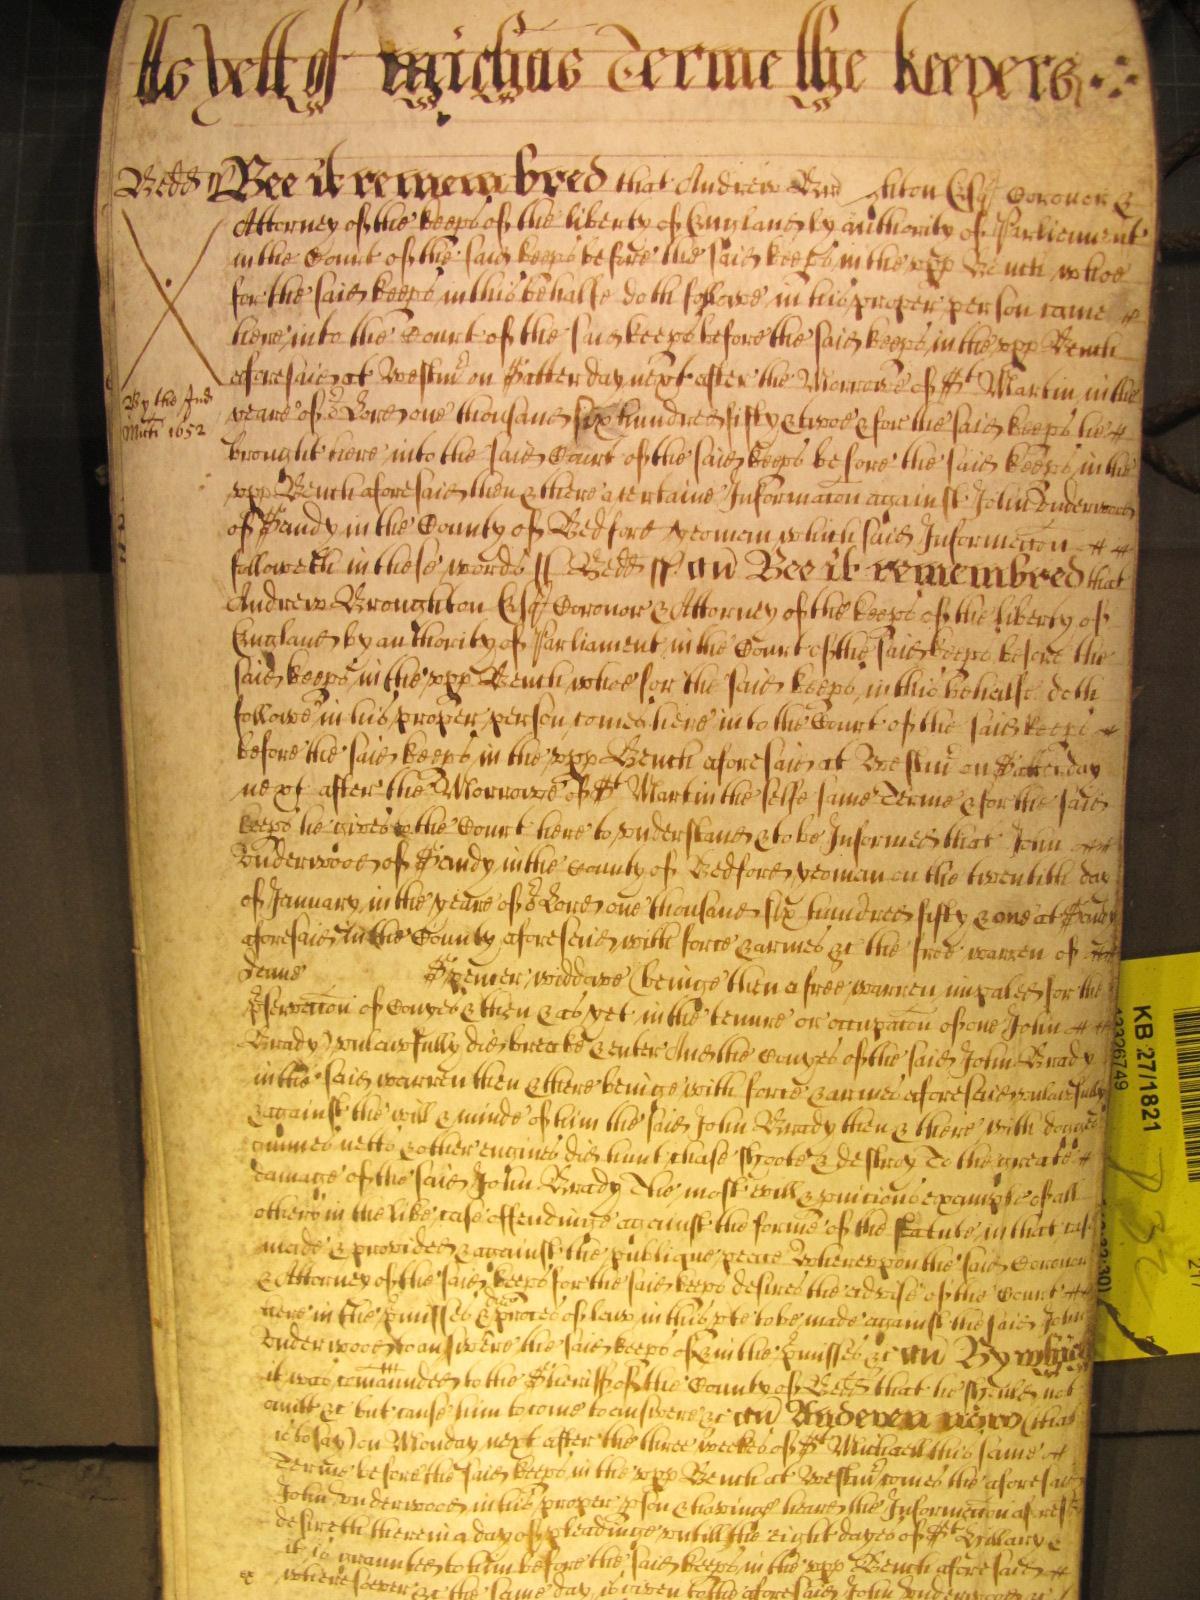 As yett of Michas Terme the keepers
Bedd ss Bee it remembred that Andrew Bro ghton Esqr Coroner &
Attorney of the keeps of the liberty of England by authority of Parliement
in the Court of the said keeps before the said keeps in the upp Bench whoe
for the said keeps in this behalfe doth followe in his proper person came
here into the Court of the said keeps before the said keeps in the upp Bench
aforesaid at Westmr on Satterday next after the Morrowe of St Martin in this
By the Ind
Mich 1652
yeare of or Lord one thousand six hundred fifty & twoe & for the said keeps he
brought here into the said Court of the said keeps before the said keeps in the
upp Bench aforesaid then & there a certaine Informacon against John Underwood
of Sandy in the County of Bedford yeoman which said Informacon
followeth in these words ss Bedd ss Bee it remembred that
Andrew Broughton Esqr Coronor & Attorney of the keeps of the liberty of
England by authority of Parliament in the Court of the said keeps before the
said keeps in the upp Bench whoe for the said keeps in this behalfe doth
followe in his proper person comes here into the Court of the said keeps
before the said keeps in the upp Bench aforesaid at Westmr on Satterday
next after the Morrowe of St Martin the selfe same Terme & for the said
keeps he gives the Court here to understand & to be Informed that John
Underwood of Sandy in the County of Bedford yeoman on the twentith day
of January in the yeare of or Lord one thousand six hundred fifty & one at Sandy
aforesaid in the County aforesaid with force & armes &c the free warren of
Spencer widdowe (beinge then a free warren impaled for the
pservacon of Conyes & then & as yet in the tenure or occupacon of one John
Brady) unlawfully did breake & enter And the Conyes of the said John Brady
in the said warren then & there beinge with force & armes aforesaid unlawfully
& against the will & minde of him the said John Brady then & there with dogges
gunnes netts & other engines did hunt chase shoote & destroy To the greate
damage of the said John Brady The most evill & pnicious example of all
others in the like case offendinge against the forme of the statute in that case
made & provided & against the publique peace Whereuppon the said Coronor
& Attorney of the said keeps for the said keeps desires the advise of the Court
here in the pmisses & due proces of law in this pte to be made against the said John
Underwood to answere the said keeps of & in the pmisses &c By which
it was comaunded to the Sheriff of the County of Bedd that he should not
omitt &c but cause him to come to answere &c And even now (that
is to say) on Monday next after the three weekes of St Michaell this same
Terme before the said keeps in the upp Bench at Westmr comes the aforesaid
John Underwood in his proper pson & havinge heard the Informacon aforesd
desireth therein a day of pleadinge untill the eight dayes of St Hillary &
it is graunted to him before the said keeps in the upp Bench aforesaid
wheresoever &c the same day is given to the aforesaid John Underwood &c
KB 27/1821
13326749